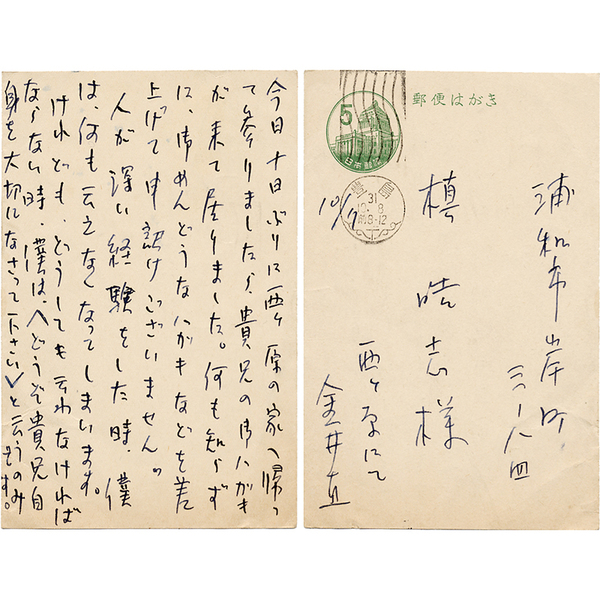 今日十日ぶりに西ヶ原の家へ帰っ
て参りましたら、貴兄の御ハガキ
が来て居りました。何も知らず
に、御めんどうなハガキなどを差
上げて申訳けございません。
人が深い経験をした時、僕
は、何も云えなくなってしまいます。
けれども、どうしても云わなければ
ならない時、僕は、〈どうぞ貴兄自
身を大切になさって下さい〉と云うのみです。
郵便はがき
5
日本郵便
豊島
31
10.8
前8-12
10/7
浦和市岸町
三ノ八四
槙晧志様
西ヶ原にて
金井直